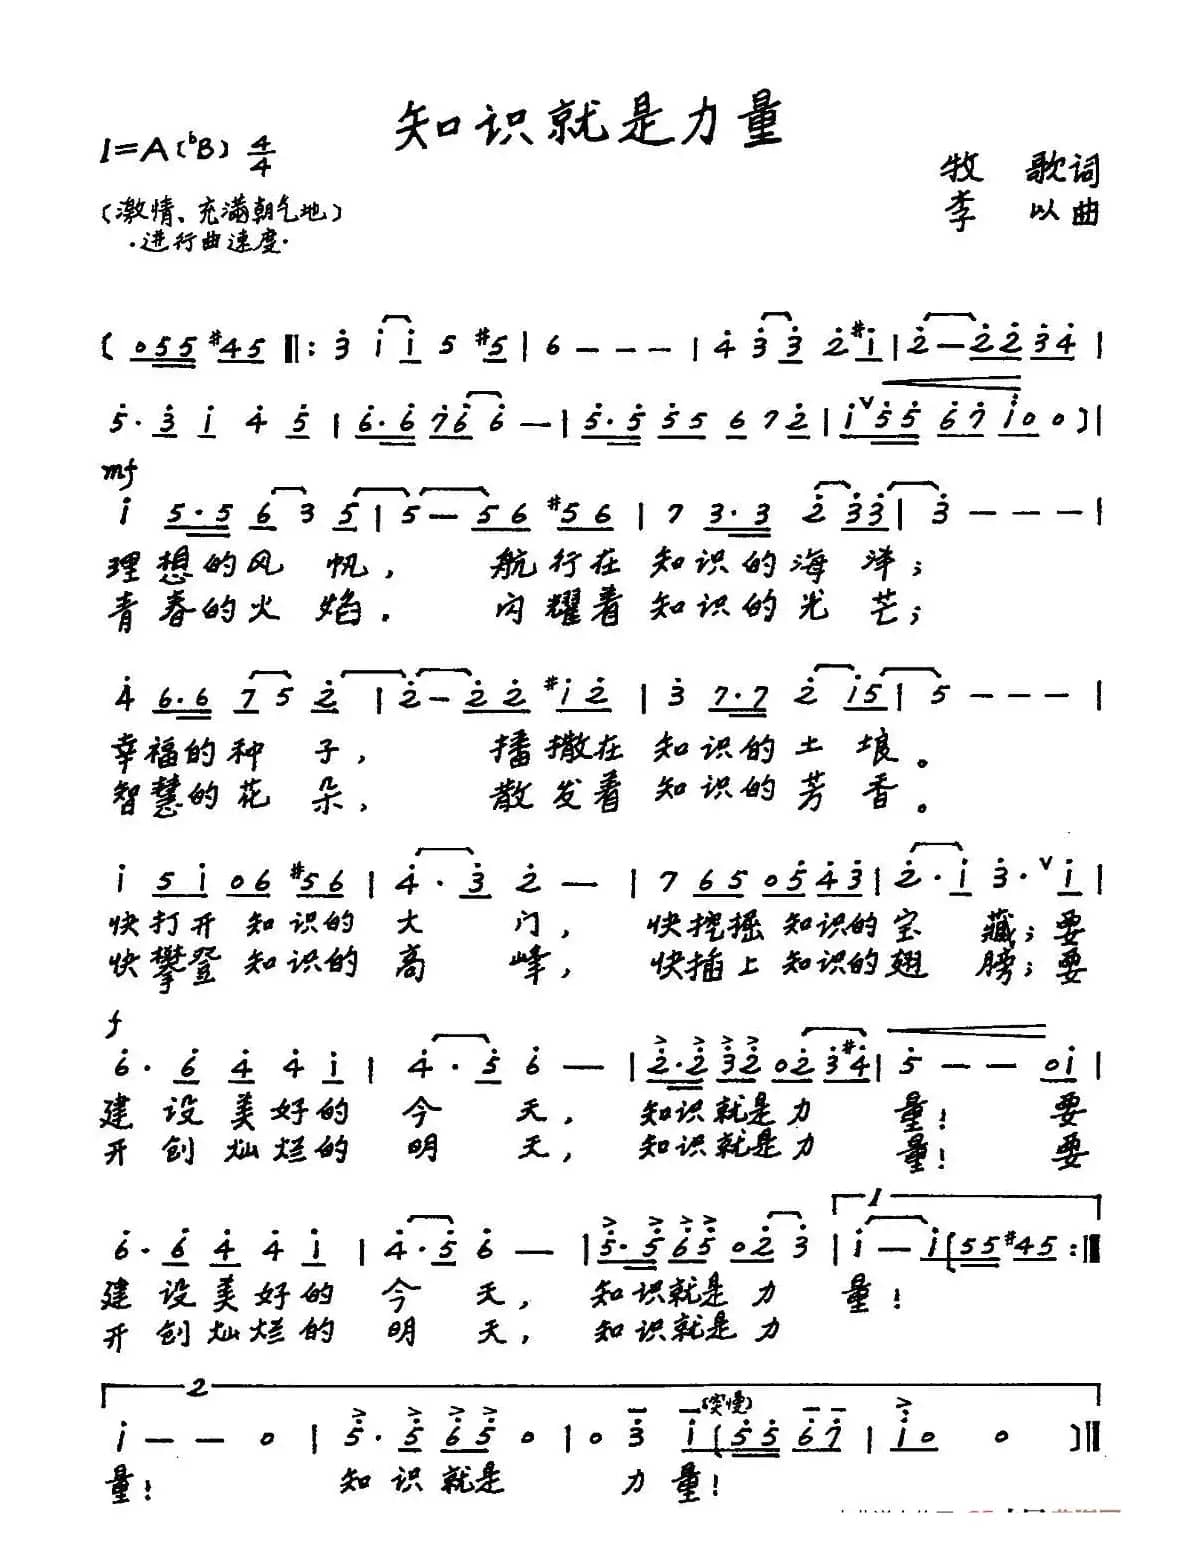 知识就是力量
1=A(♭B) 4/4
牧 歌词
(激情、充满朝气地)
李 以曲
·进行曲速度·
(055 #45 ‖: 3 i i 5 #5 | 6 - - - | 4 3 3 2 #i | 2 - 2 2 3 4 |
5· 3 i 4 5 | 6·6 7 6 6 - | 5·5 5 5 6 7 2 | i ∨ 5 5 6 7 i 0 0 ) |
mf
i 5·5 6 3 5 | 5 - 5 6 #5 6 | 7 3·3 2 3 3 | 3 - - - |
理想的风 帆, 航行在 知识的海 洋;
青春的火 焰. 闪耀着 知识的光 芒;
4 6·6 7 5 2 | 2 - 2 2 #i 2 | 3 7·7 2 i 5 | 5 - - - |
幸福的种 子, 播撒在 知识的土 埌。
智慧的花 朵, 散发着 知识的芳 香。
i 5 i 0 6 #5 6 | 4· 3 2 - | 7 6 5 0 5 4 3 | 2· i 3· ∨ i |
快打开 知识的 大 门, 快挖掘 知识的宝 藏; 要
快攀登 知识的 高 峰, 快插上 知识的翅 膀; 要
f
6· 6 4 4 i | 4· 5 6 - | 2·2 3 2 0 2 3 #4 | 5 - - 0 i |
建 设 美好的 今 天, 知识就是力 量! 要
开 创 灿烂的 明 天, 知识就是力 量! 要
1
6· 6 4 4 i | 4· 5 6 - | 5·5 6 5 0 2 3 | i - i (5 5 #4 5 :‖
建 设美好的 今 天, 知识就是 力 量!
开 创灿烂的 明 天, 知识就是 力
2
(突慢)
i - - 0 | 5· 5 6 5 0 | 0 3 i (5 5 6 7 | i 0 0 )‖
量! 知 识 就是 力 量!